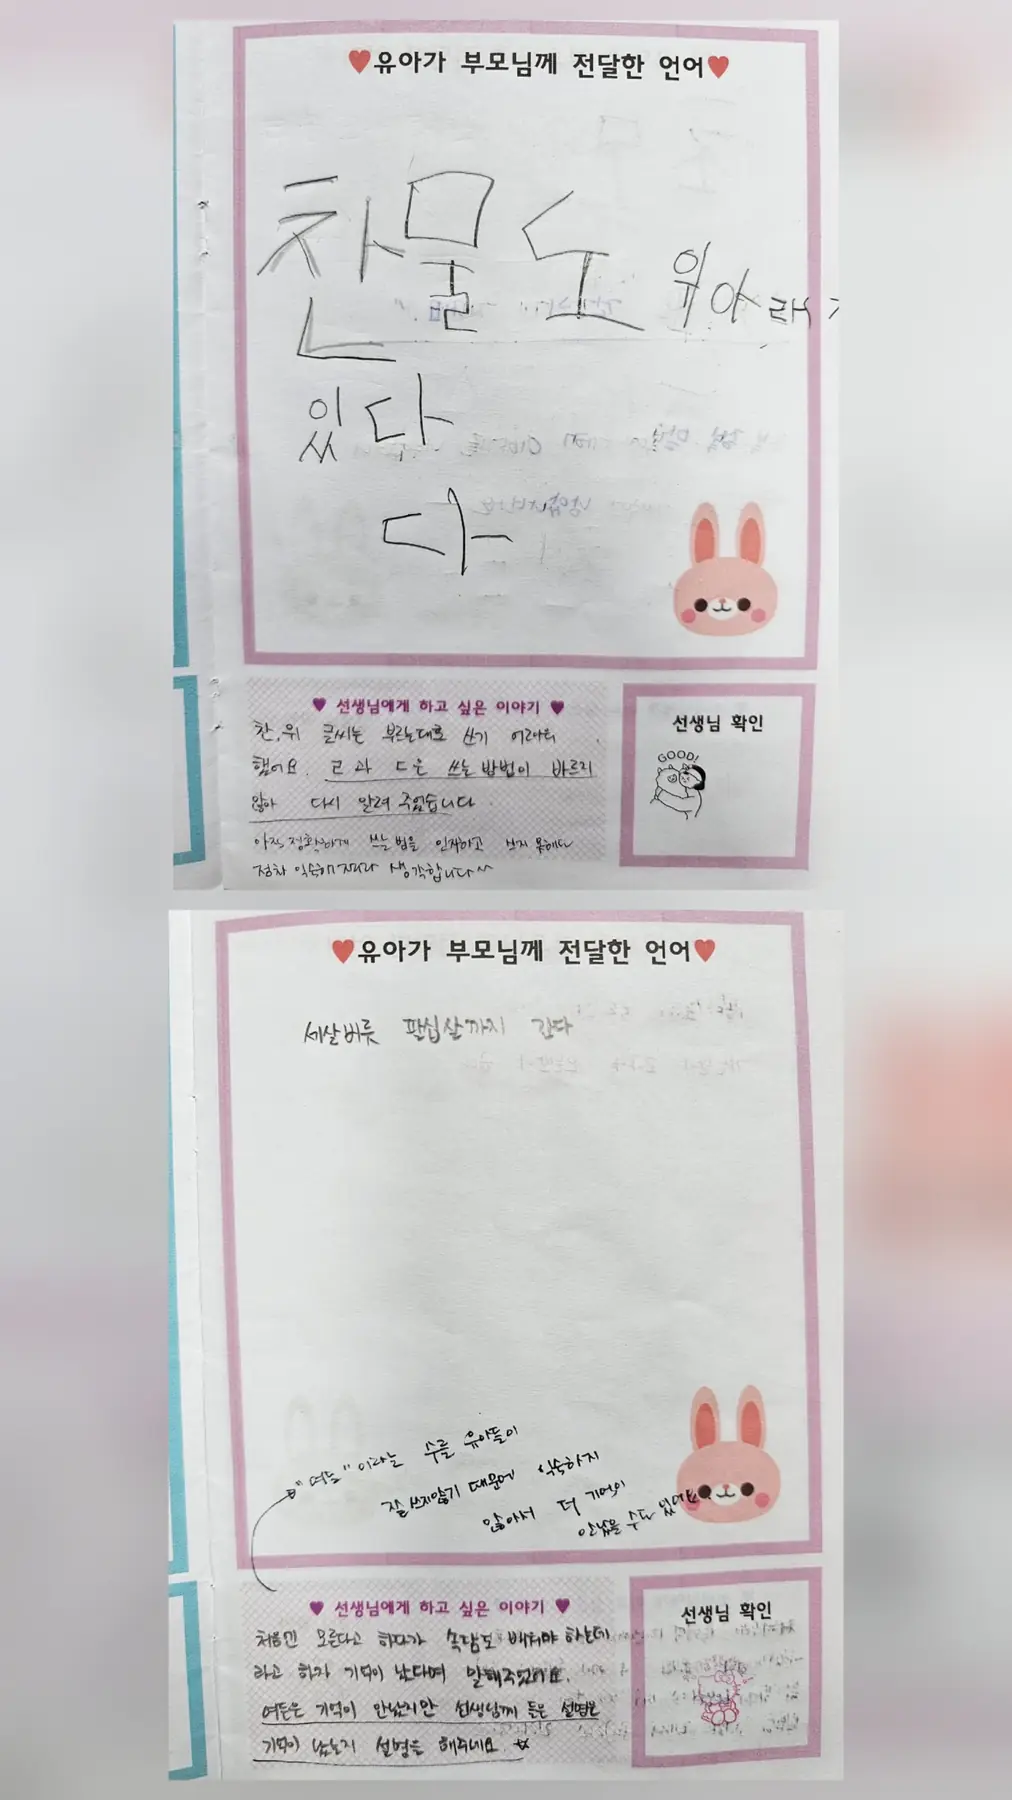 ♥유아가 부모님께 전달한 언어♥
찬물도 위아래가
있다
다
♥ 선생님에게 하고 싶은 이야기 ♥
찬, 위 글씨는 부르는대로 쓰기 어려워
했어요. ㄹ과 ㄷ은 쓰는 방법이 바르지
않아 다시 알려 주었습니다
아직 정확하게 쓰는 법을 인지하고 쓰지 못해도
점차 익숙해지리라 생각합니다^^
선생님 확인
GOOD!
♥유아가 부모님께 전달한 언어♥
세살버릇 팔십살까지 간다
"여든"이라는 수를 유아들이
잘 쓰지않기 때문에 익숙하지
않아서 더 기억이
안났을 수도 있어요
♥ 선생님에게 하고 싶은 이야기 ♥
처음엔 모른다고 하다가 속담도 배워야 하는데
라고 하자 기억이 난다며 말해주었어요.
여든은 기억이 안났지만 선생님께 들은 설명은
기억이 났는지 설명을 해주네요 ☆
선생님 확인